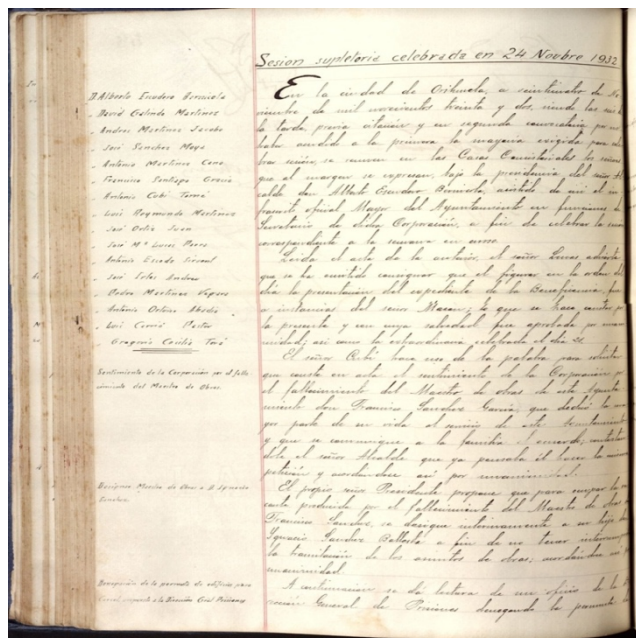 Sesion supletoria celebrada en 24 Novbre 1932
D. Alberto Escudero Bernicola
David Galindo Martinez
Andres Martinez
José Sanchez Moya
Antonio Martinez Cano
Francisco Santiago Gracia
Antonio Cubí Tormo
Luis Raymundo Martinez
José Ortiz Juan
José Mª Lucas Perez
Antonio Escudo
José Soles Andreu
Pedro Martinez
Antonio Ortuño
Luis Correa Pastor
Gregorio
Sentimiento de la Corporación por el falle
cimiento del Maestro de Obras
Designase Maestro de Obras a D. Ignacio
Sanchez
Denegación de la permuta de edificio para
Carcel, respuesta de la Dirección Gral Prisiones
En la ciudad de Orihuela, a veinticuatro de No
viembre de mil novecientos treinta y dos, siendo las
la tarde, previa citación y en segunda convocatoria por no
haber acudido a la primera la mayoria exigida para cele
brar sesión, se reunen en las Casas Consistoriales los señores
que al margen se expresan, bajo la presidencia del señor Al
calde don Alberto Escudero Bernicola, asistido de mi el in
frascrito oficial Mayor del Ayuntamiento en funciones de
Secretario de dicha Corporación, a fin de celebrar la sesión
correspondiente a la semana en curso.
Leida el acta de la anterior, el señor Lucas advierte
que se ha omitido consignar que el figurar en la orden del
día la presentación del expediente de la Beneficencia fue
a instancias del señor; lo que se hace constar por
la presente y con cuya salvedad fue aprobada por unani
midad; así como la extraordinaria celebrada el día 22.
El señor Cubí hace uso de la palabra para solicitar
que conste en acta el sentimiento de la Corporación por
el fallecimiento del Maestro de obras de este Ayunta
miento don Francisco Sanchez Garcia, que dedicó la ma
yor parte de su vida al servicio de este Ayuntamiento
y que se comunique a la familia el acuerdo; contestan
dole el señor Alcalde que ya pensaba él hacer la misma
petición y acordandose así por unanimidad.
El propio señor Presidente propone que para ocupar la va
cante producida por el fallecimiento del Maestro de obras
Francisco Sanchez, se designe interinamente a su hijo
Ignacio Sanchez Ballesta a fin de no tener
la tramitación de los asuntos de obras; acordandose así por
unanimidad.
A continuación se dá lectura de un oficio de la Di
rección General de Prisiones denegando la permuta